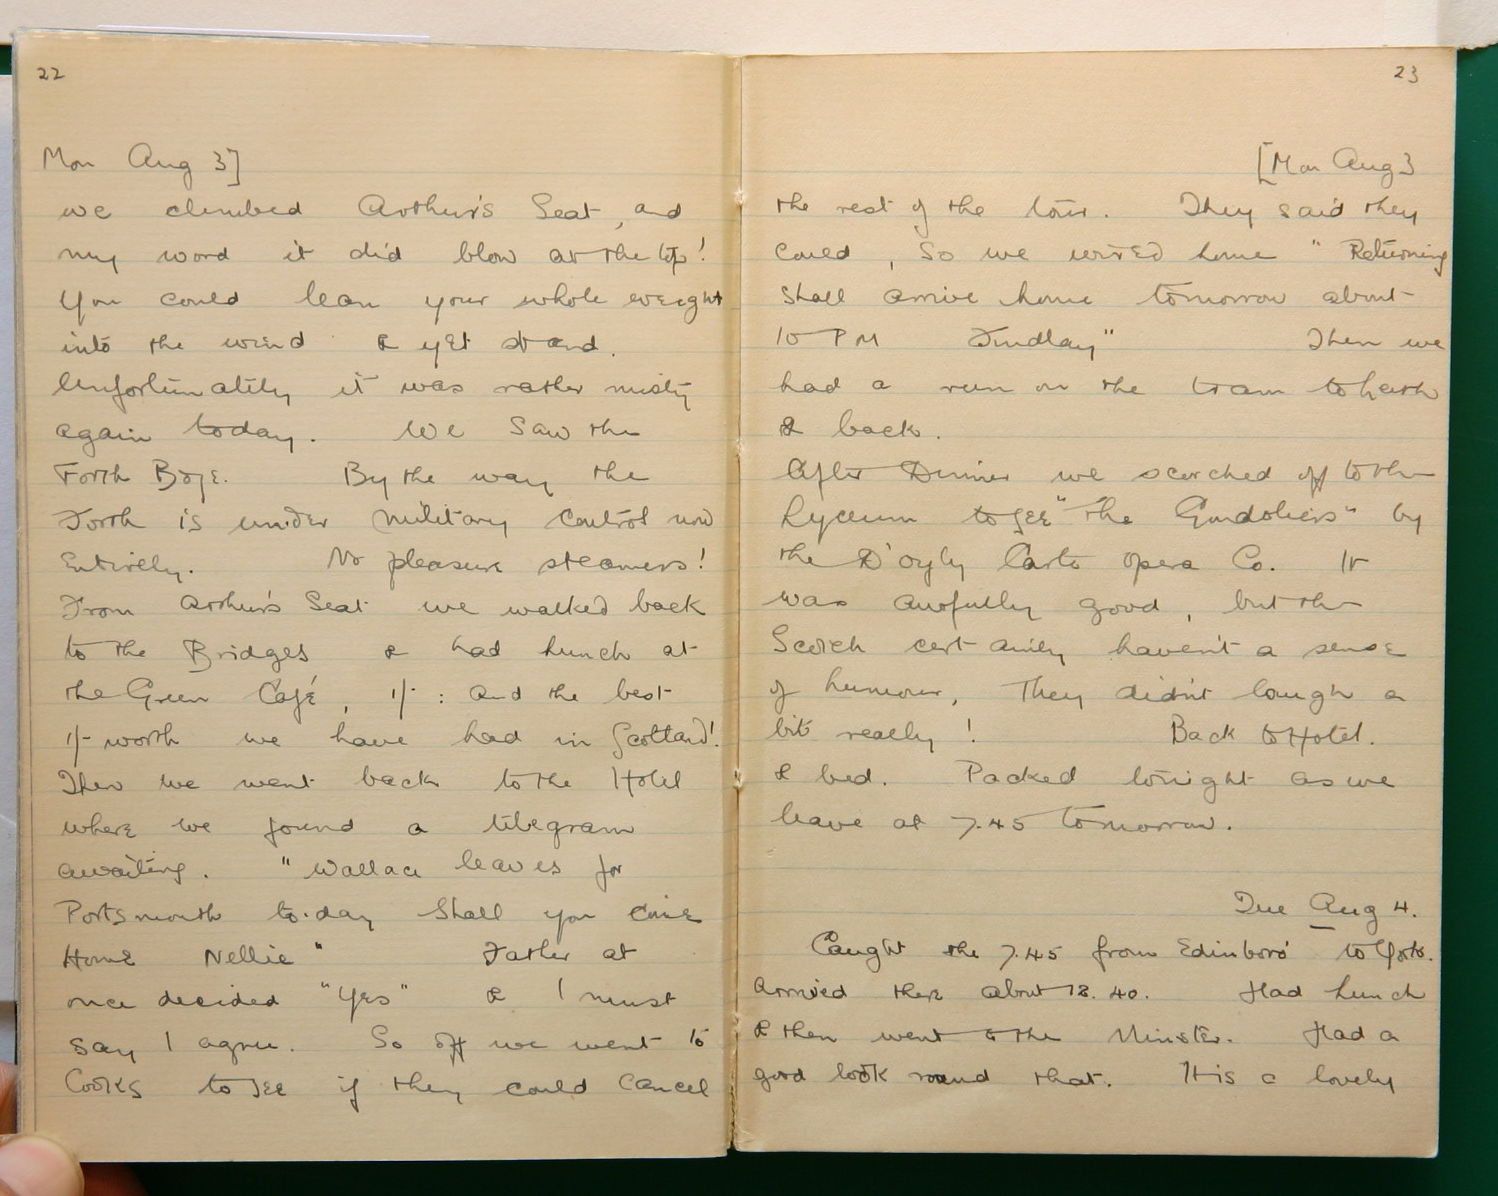 22
Mon Aug 3]
we climbed Arthur's Seat, and
my word it did blow at the top!
You could lean your whole weight
into the wind & yet stand.
Unfortunately it was rather misty
again today. We saw the
Forth Bdge. By the way the
Forth is under military control now
Entirely. No pleasure steamers!
From Arthur's Seat we walked back
to the Bridges & had lunch at
the Green Café, 1/- : and the best
1/- worth we have had in Scotland!
Then we went back to the Hotel
where we found a telegram
awaiting. "Wallace leaves for
Portsmouth to-day Shall you come
Home Nellie" Father at
once decided "Yes" & I must
say I agree. So off we went to
Cooks to see if they could cancel
23
[Mon Aug 3
the rest of the tour. They said they
could, So we wired home "Returning
Shall arrive home tomorrow about
10 PM Findlay" Then we
had a run on the tram to Leith
& back.
After Dinner we scorched off to the
Lyceum to see "The Gondoliers" by
the D'Oyly Carte Opera Co. It
was awfully good, but the
Scotch certainly haven't a sense
of humour, They didn't laugh a
bit really! Back to Hotel.
& bed. Packed tonight as we
leave at 7.45 tomorrow.
Tue Aug 4.
Caught the 7.45 from Edinboro' to York.
Arrived there about 12.40. Had lunch
& then went to the Minster. Had a
good look round that. It is a lovely